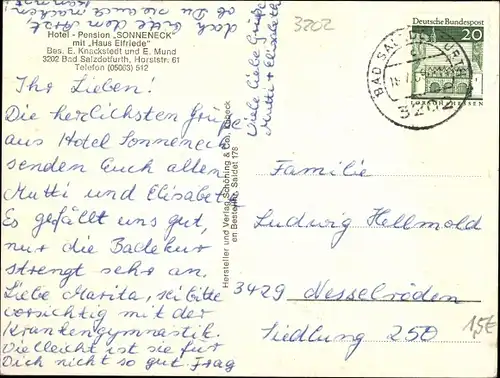 doch bitte dem Arzt,
ob Du sie auch machen
kannst.
3202
Hotel - Pension „SONNENECK"
mit „Haus Elfriede"
Bes. E. Knackstedt und E. Mund
3202 Bad Salzdetfurth, Horststr. 61
Telefon (05063) 512
Ihr Lieben!
Die herzlichsten Grüße
aus Hotel Sonneneck
senden Euch allen
Mutti und Elisabeth
Es gefällt uns gut,
nur die Badekur
strengt sehr an.
Liebe Marita, sei bitte
vorsichtig mit der
Krankengymnastik.
Vielleicht ist sie für
Dich nicht so gut. Frag
Viele liebe Grüße
Mutti + Elisabeth
Hersteller und Verlag Schöning & Co., Lübeck
Saldet 178
Deutsche Bundespost
20
LORSCH HESSEN
BAD SALZDETFURTH
3202
Familie
Ludwig Hellmold
3429 Nesselröden
Siedlung 250
1,5€